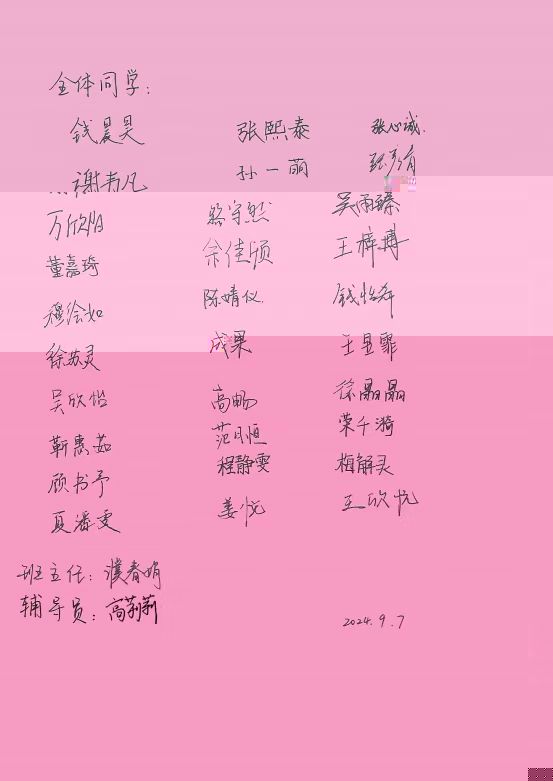 全体同学：
钱晨昊 张熙泰 张心诚.
谢韦凡 孙一萌 张彦有
万欣怡 蔡宇然 吴雨臻
董嘉琦 余佳颀 王梓搏
穆绘如 陈婧仪. 钱怡希
徐苏灵 成果 王昱霏
吴欣怡 高畅 徐晶晶
靳惠茹 范月恒 荣千漪
顾书予 程静雯 梅解灵
夏潘雯 姜悦 王欣忱
班主任：濮春娟
辅导员：高莉莉
2024.9.7